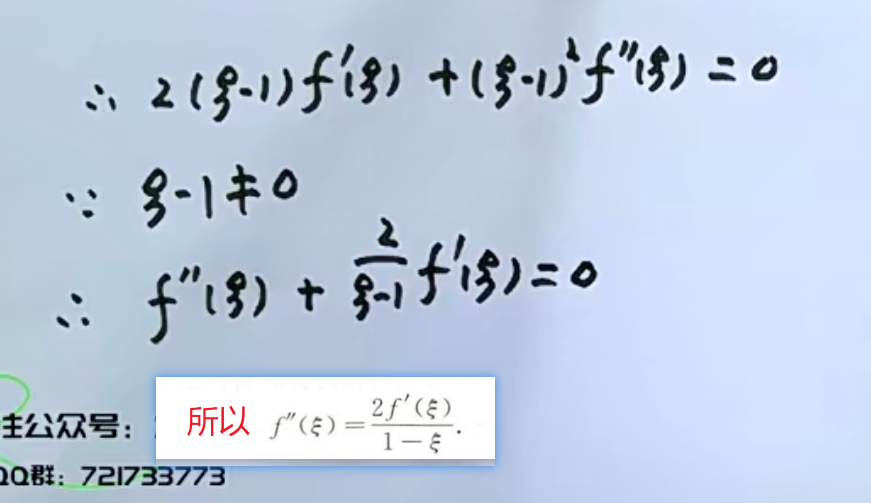 ∴ 2(ξ-1)f'(ξ) + (ξ-1)²f''(ξ) = 0
∵ ξ-1≠0
∴ f''(ξ) + \frac{2}{ξ-1} f'(ξ) = 0
所以 f''(ξ) = \frac{2f'(ξ)}{1-ξ}.
公众号:
QQ群: 721733773